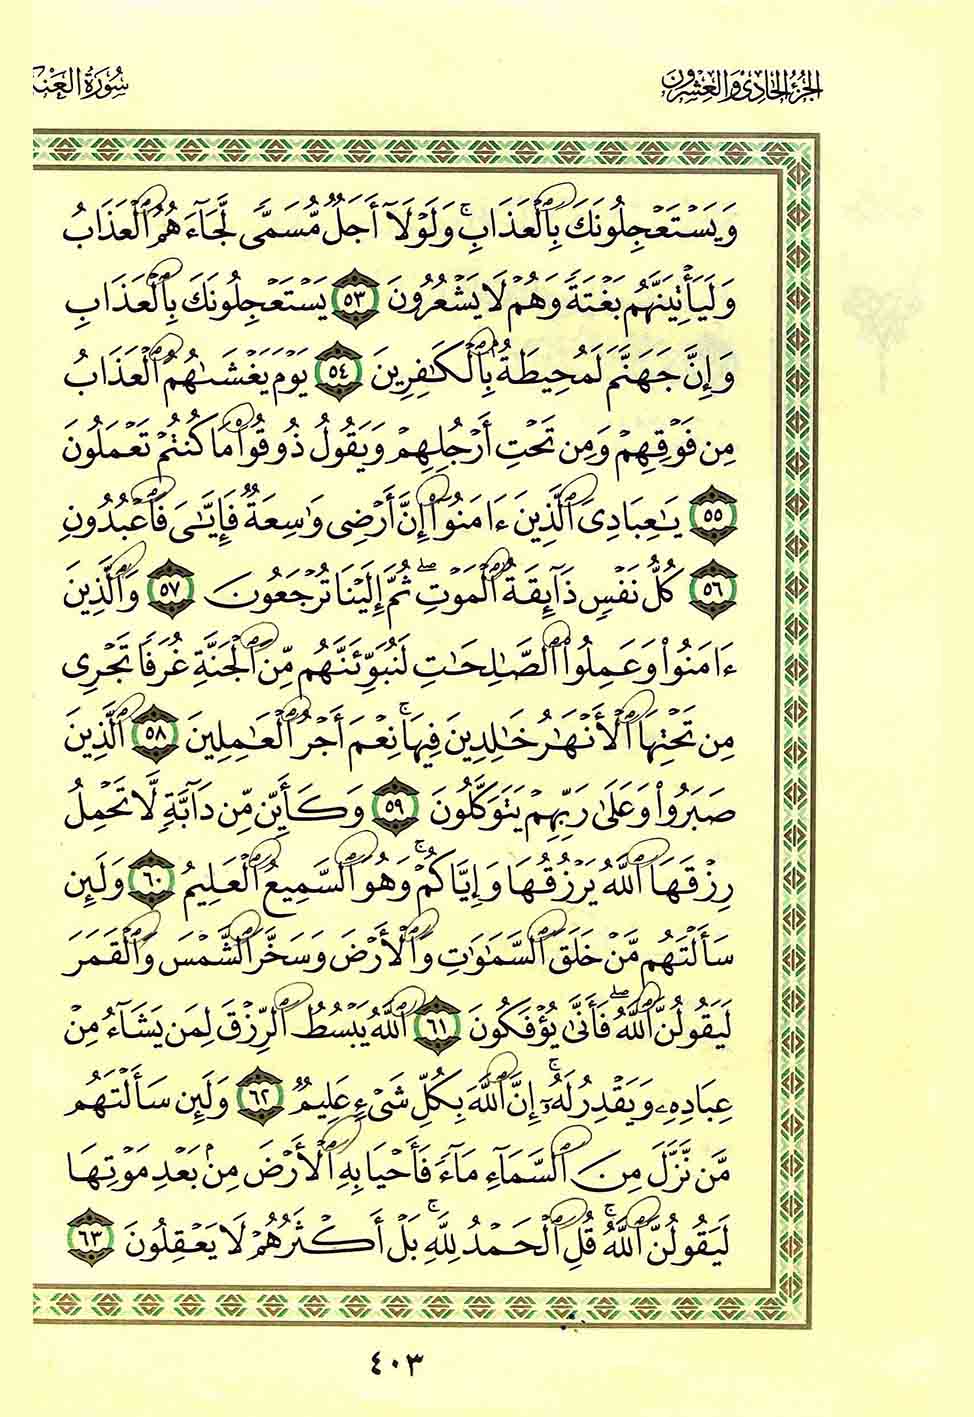 الجزء الحادي والعشرون
سورة العنك
وَيَسْتَعْجِلُونَكَ بِٱلْعَذَابِ ۚ وَلَوْلَآ أَجَلٌ مُّسَمًّى لَّجَآءَهُمُ ٱلْعَذَابُ
وَلَيَأْتِيَنَّهُم بَغْتَةً وَهُمْ لَا يَشْعُرُونَ ٥٣ يَسْتَعْجِلُونَكَ بِٱلْعَذَابِ
وَإِنَّ جَهَنَّمَ لَمُحِيطَةٌۢ بِٱلْكَٰفِرِينَ ٥٤ يَوْمَ يَغْشَىٰهُمُ ٱلْعَذَابُ
مِن فَوْقِهِمْ وَمِن تَحْتِ أَرْجُلِهِمْ وَيَقُولُ ذُوقُوا۟ مَا كُنتُمْ تَعْمَلُونَ
٥٥ يَٰعِبَادِىَ ٱلَّذِينَ ءَامَنُوٓا۟ إِنَّ أَرْضِى وَٰسِعَةٌ فَإِيَّٰىَ فَٱعْبُدُونِ
٥٦ كُلُّ نَفْسٍ ذَآئِقَةُ ٱلْمَوْتِ ۖ ثُمَّ إِلَيْنَا تُرْجَعُونَ ٥٧ وَٱلَّذِينَ
ءَامَنُوا۟ وَعَمِلُوا۟ ٱلصَّٰلِحَٰتِ لَنُبَوِّئَنَّهُم مِّنَ ٱلْجَنَّةِ غُرَفًا تَجْرِى
مِن تَحْتِهَا ٱلْأَنْهَٰرُ خَٰلِدِينَ فِيهَا ۚ نِعْمَ أَجْرُ ٱلْعَٰمِلِينَ ٥٨ ٱلَّذِينَ
صَبَرُوا۟ وَعَلَىٰ رَبِّهِمْ يَتَوَكَّلُونَ ٥٩ وَكَأَيِّن مِّن دَآبَّةٍ لَّا تَحْمِلُ
رِزْقَهَا ٱللَّهُ يَرْزُقُهَا وَإِيَّاكُمْ ۚ وَهُوَ ٱلسَّمِيعُ ٱلْعَلِيمُ ٦٠ وَلَئِن
سَأَلْتَهُم مَّنْ خَلَقَ ٱلسَّمَٰوَٰتِ وَٱلْأَرْضَ وَسَخَّرَ ٱلشَّمْسَ وَٱلْقَمَرَ
لَيَقُولُنَّ ٱللَّهُ ۖ فَأَنَّىٰ يُؤْفَكُونَ ٦١ ٱللَّهُ يَبْسُطُ ٱلرِّزْقَ لِمَن يَشَآءُ مِنْ
عِبَادِهِۦ وَيَقْدِرُ لَهُۥٓ ۚ إِنَّ ٱللَّهَ بِكُلِّ شَىْءٍ عَلِيمٌ ٦٢ وَلَئِن سَأَلْتَهُم
مَّن نَّزَّلَ مِنَ ٱلسَّمَآءِ مَآءً فَأَحْيَا بِهِ ٱلْأَرْضَ مِنۢ بَعْدِ مَوْتِهَا
لَيَقُولُنَّ ٱللَّهُ ۚ قُلِ ٱلْحَمْدُ لِلَّهِ ۚ بَلْ أَكْثَرُهُمْ لَا يَعْقِلُونَ ٦٣
٤٠٣